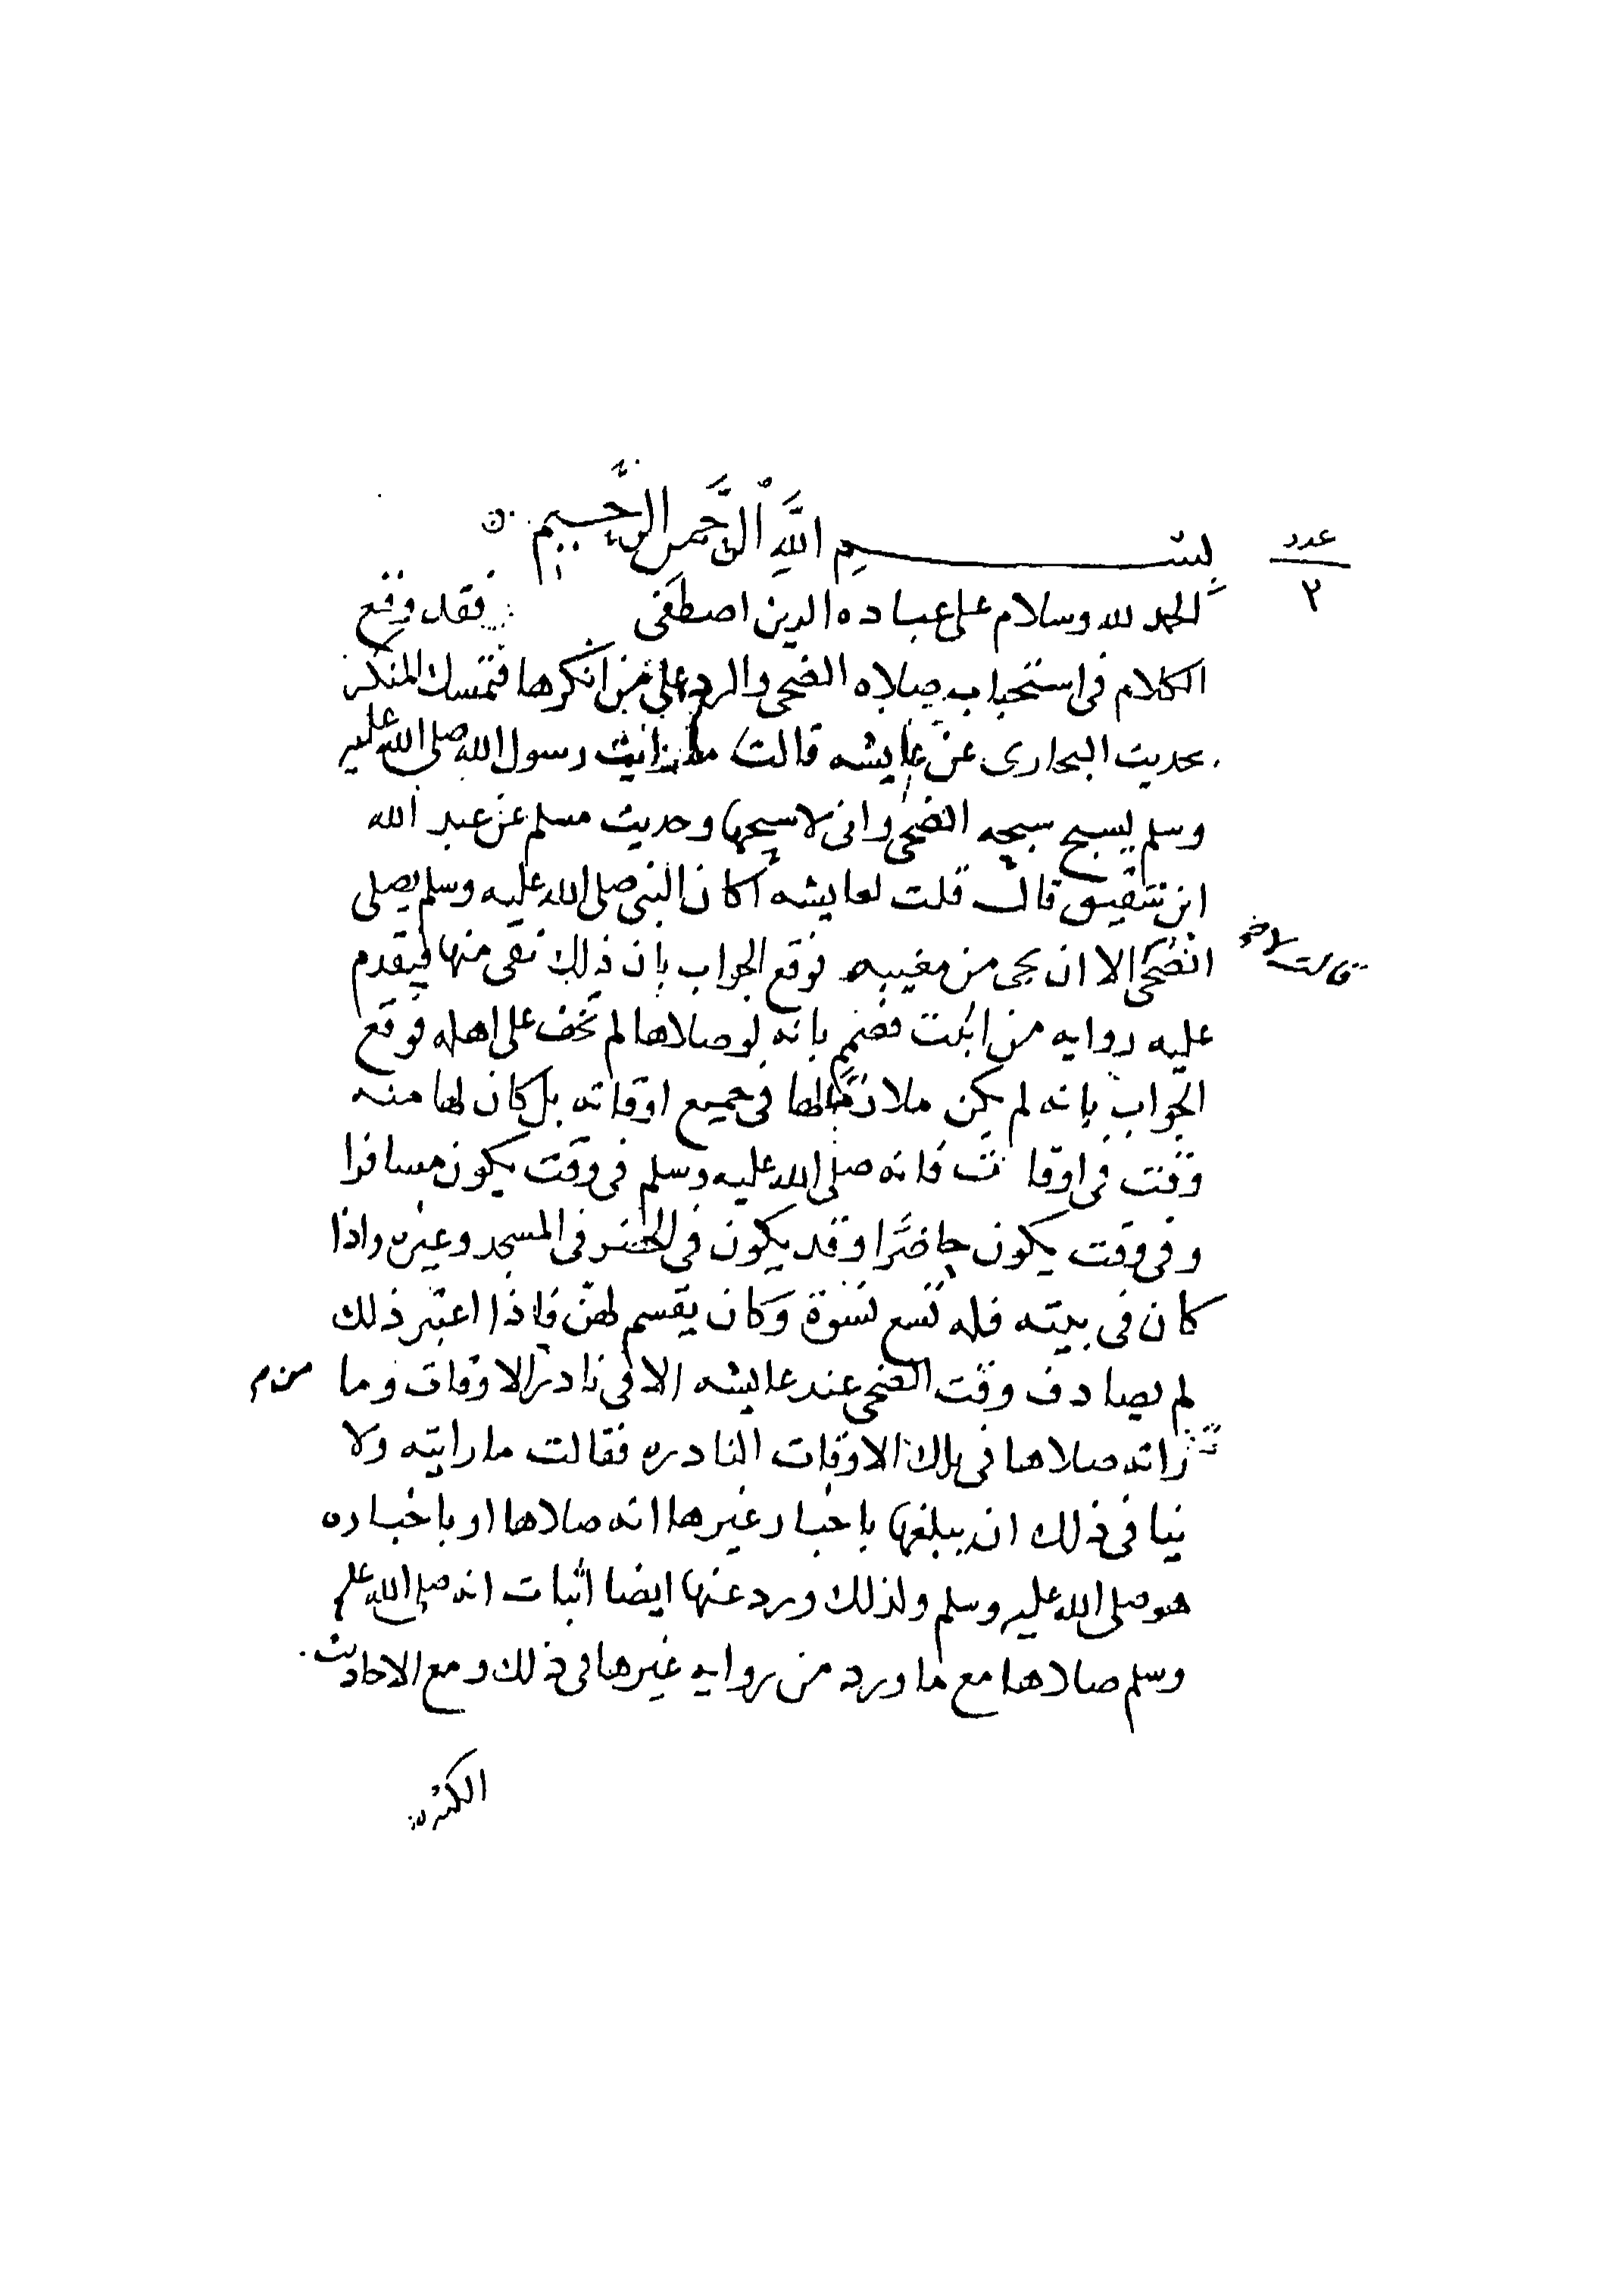 عدد
٢
بسم الله الرحمن الرحيم
الحمد لله وسلام على عباده الدين اصطفى فقد وقع
الكلام فى استحباب صلاه الضحى والرد على من انكرها فتمسك المنكر
بحديث البخارى عن عايشه قالت ما رايت رسول الله صلى الله عليه
وسلم يسبح سبحه الضحى وانى لاسبحها وحديث مسلم عن عبد الله
ابن شقيق قال قلت لعايشه اكان النبى صلى الله عليه وسلم يصلى
قالت لا
الضحى الا ان يجى من مغيبه فوقع الجواب بان ذلك نفى منها فيقدم
عليه روايه من اثبت فضم بانه لو صلاها لم تخف على اهله فوقع
الجواب بانه لم يكن ملازما لها فى جميع اوقاته بل كان لها منه
وقت فى اوقات فانه صلى الله عليه وسلم فى وقت يكون مسافرا
وفى وقت يكون حاضرا وقد يكون فى الحضر فى المسجد وغيره واذا
كان فى بيته فله تسع نسوة وكان يقسم لهن فاذا اعتبر ذلك
لم يصادف وقت الضحى عند عايشه الا فى نادر الاوقات وما
من م
راته صلاها فى تلك الاوقات النادره فقالت ما رايته ولا
ينافى ذلك ان يبلغها باخبار غيرها انه صلاها او باخباره
هو صلى الله عليه وسلم ولذلك ورد عنها ايضا اثبات انه صلى الله علي
وسلم صلاها مع ما ورد من روايه غيرها فى ذلك ومع الاحاديث
الكثيره